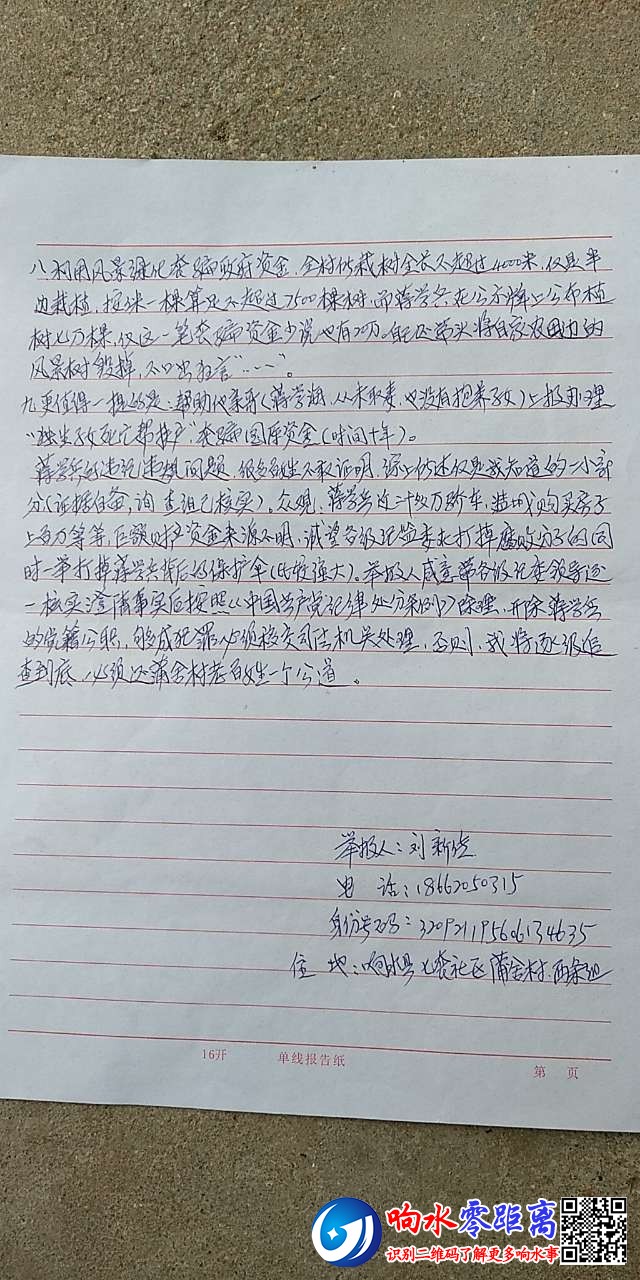 八.利用风景绿化套骗政府资金,全村所栽树全长不超过4000米,仅是单
边栽植,按米一棵算足不超过7500棵树,而蒋学兵在公示牌上公布植
树七万棵,仅这一笔套骗资金少说也有20万。能还带头将自家农田边的
风景树毁掉,不口出狂言“……”。
九.更值得一提的是,帮助他亲哥(蒋学,从未取妻,也没有抱养子女)上报办理
“独生子女死亡帮扶户”套骗国库资金(时间十年)。
蒋学兵的违纪违规问题,很多百姓不敢证明,综上所述仅是我知道的一小部
分(证据自备,询查自己核实)。众观,蒋学兵近二十几万轿车,县城购买房子
上百万等等,巨额财产资金来源不明,诚望各级纪监委在打掉腐败分子的同
时一举打掉蒋学兵背后的保护伞(比较强大)。举报人感意带各级纪委领导逐
一核实,澄清事实后按照《中国共产党纪律处分条例》除理,开除蒋学兵
的党籍公职,够成犯罪必须移交司法机关处理,否则,我将逐级追
查到底,必须还蒲舍村老百姓一个公道。
举报人:刘新
电 话:18662050315
身份号码:320921195606134635
住 地:响水县七套社区蒲舍村西条组
16开 单线报告纸 第 页
响水零距离
识别二维码了解更多响水事